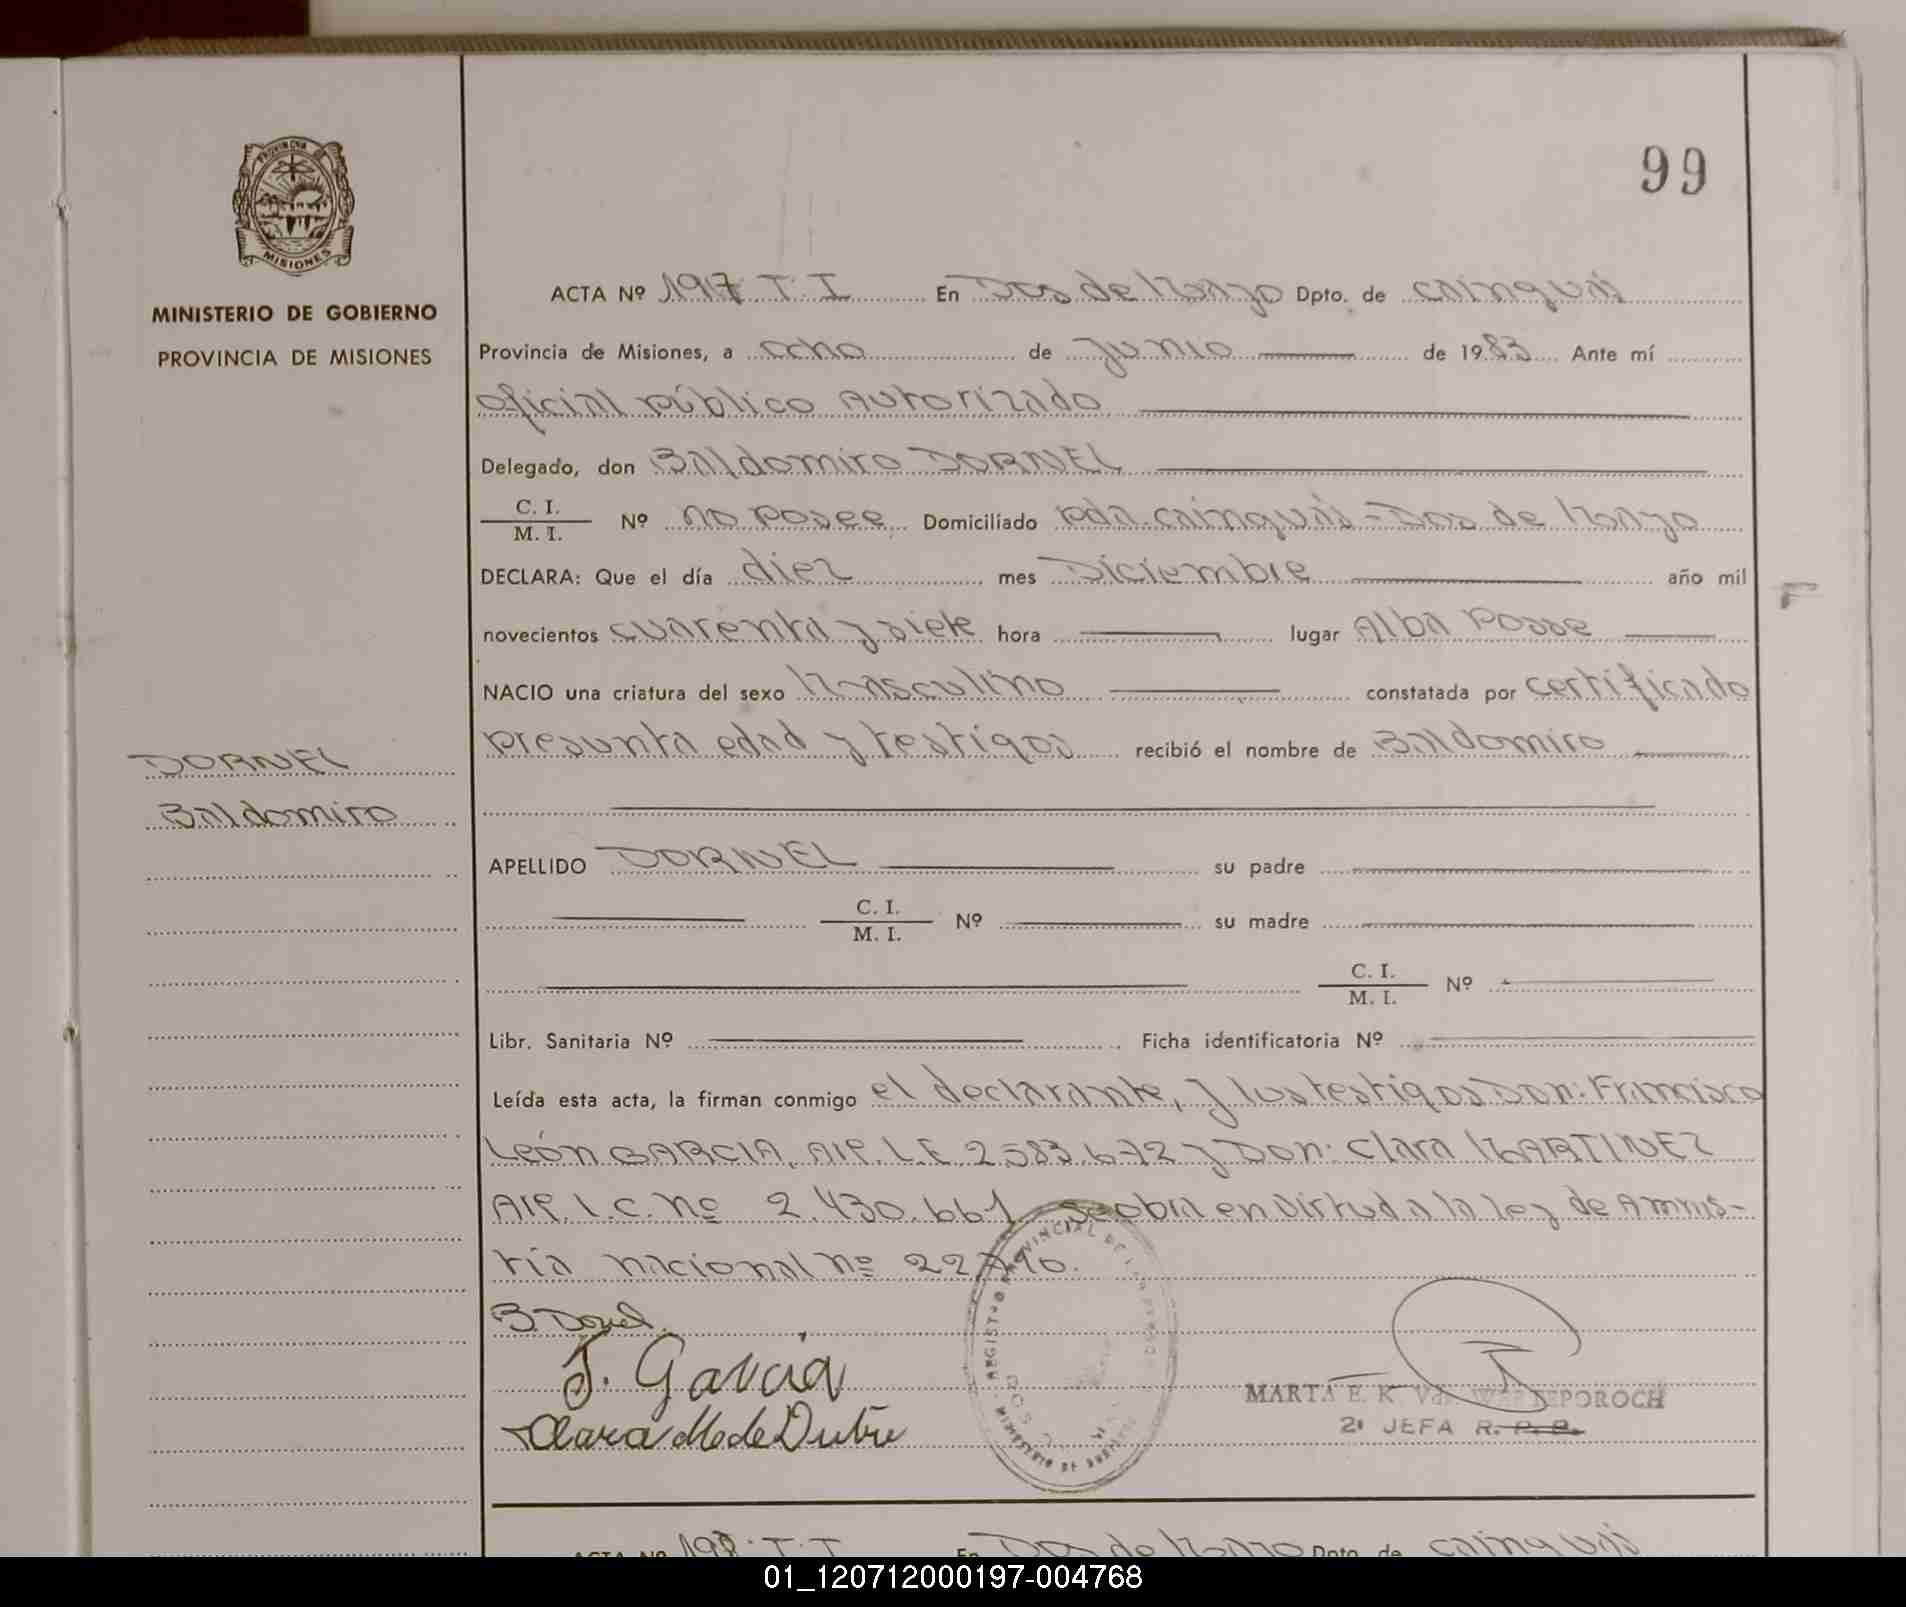 99
PROVINCIA
MISIONES
MINISTERIO DE GOBIERNO
PROVINCIA DE MISIONES
DORNEL
Baldomiro
ACTA Nº 197 T. I En Dos de Mayo Dpto. de Cainguás
Provincia de Misiones, a ocho de Junio de 1983 Ante mí
Oficial público Autorizado
Delegado, don Baldomiro DORNEL
C. I.
M. I. Nº no posee Domiciliado Pda. Cainguás - Dos de Mayo
DECLARA: Que el día diez mes Diciembre año mil
novecientos cuarenta y siete hora lugar Alba Posse
NACIO una criatura del sexo Masculino constatada por certificado
presunta edad y testigos recibió el nombre de Baldomiro
APELLIDO DORNEL su padre
C. I.
M. I. Nº su madre
C. I.
M. I. Nº
Libr. Sanitaria Nº Ficha identificatoria Nº
Leída esta acta, la firman conmigo el declarante, y los testigos Don: Francisco
León GARCIA, M.I.L.E. 2.583.672 y Don: Clara MARTINEZ
M.I.L.C. nº 2.430.661 se obra en virtud a la ley de Amnis-
tía nacional nº
B. Dornel
F. Garcia
Clara M de Dutra
REGISTRO PROVINCIAL DE LAS PERSONAS
DOS
MARTA E. K. Vda.
2ª JEFA R. P. P.
ACTA Nº 198 T. I En Dos de Mayo Dpto. de Cainguás
01_120712000197-004768